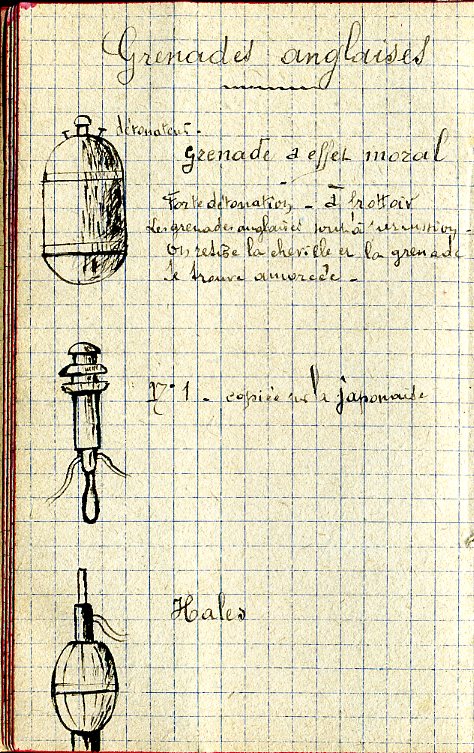 Grenades anglaises
détonateur.
Grenade à effet moral
Forte détonation - à frottoir
Les grenades anglaises sont à percussion -
On retire la cheville et la grenade
se trouve amorcée -
N° 1 - copiée sur la japonaise
Hales